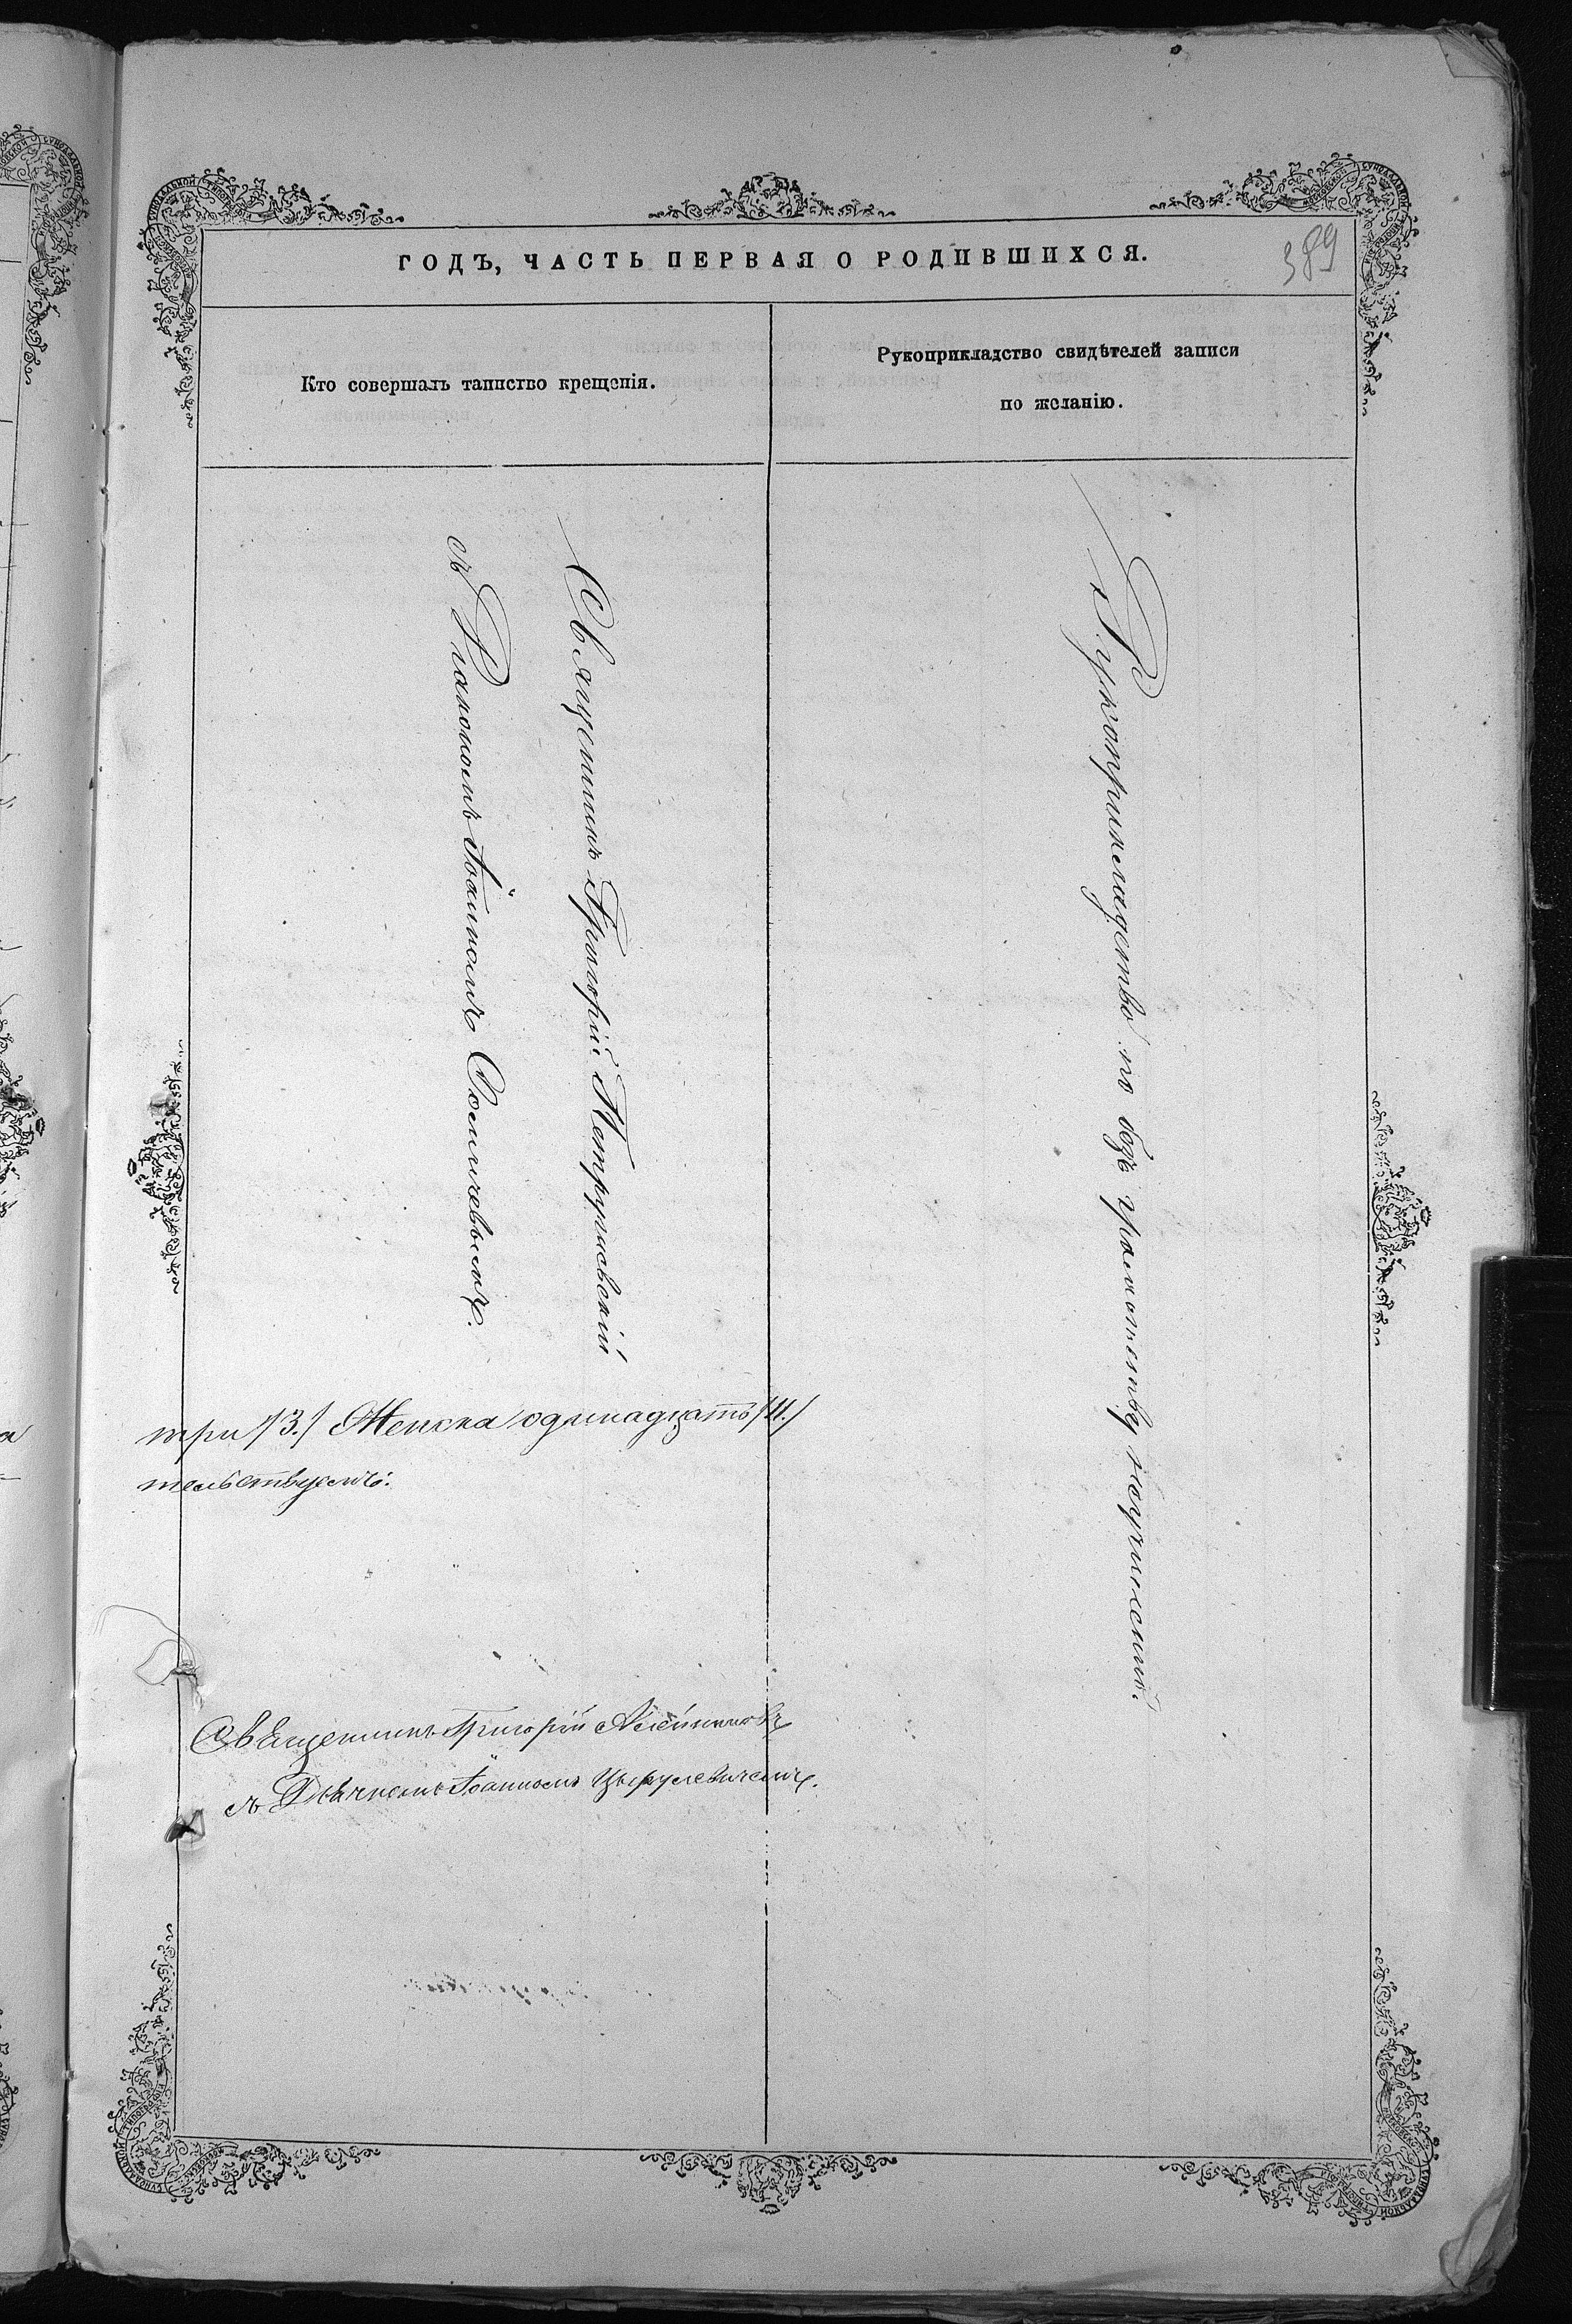 ГОДЪ, ЧАСТЬ ПЕРВАЯ О РОДИВШИХСЯ.
389
Кто совершалъ таинство крещенія.
Рукоприкладство свидѣтелей записи
по желанію.
Священникъ Григорій Петрушевскій
съ Диакономъ Іоанномъ
Рукоприкладство по безграмотству неучинено.
три /3./ Женска одинадцать /11./
тельствуемъ:
Священникъ Григорій Алейниковъ
съ Дьячкомъ Іоанномъ Цырулевичемъ.